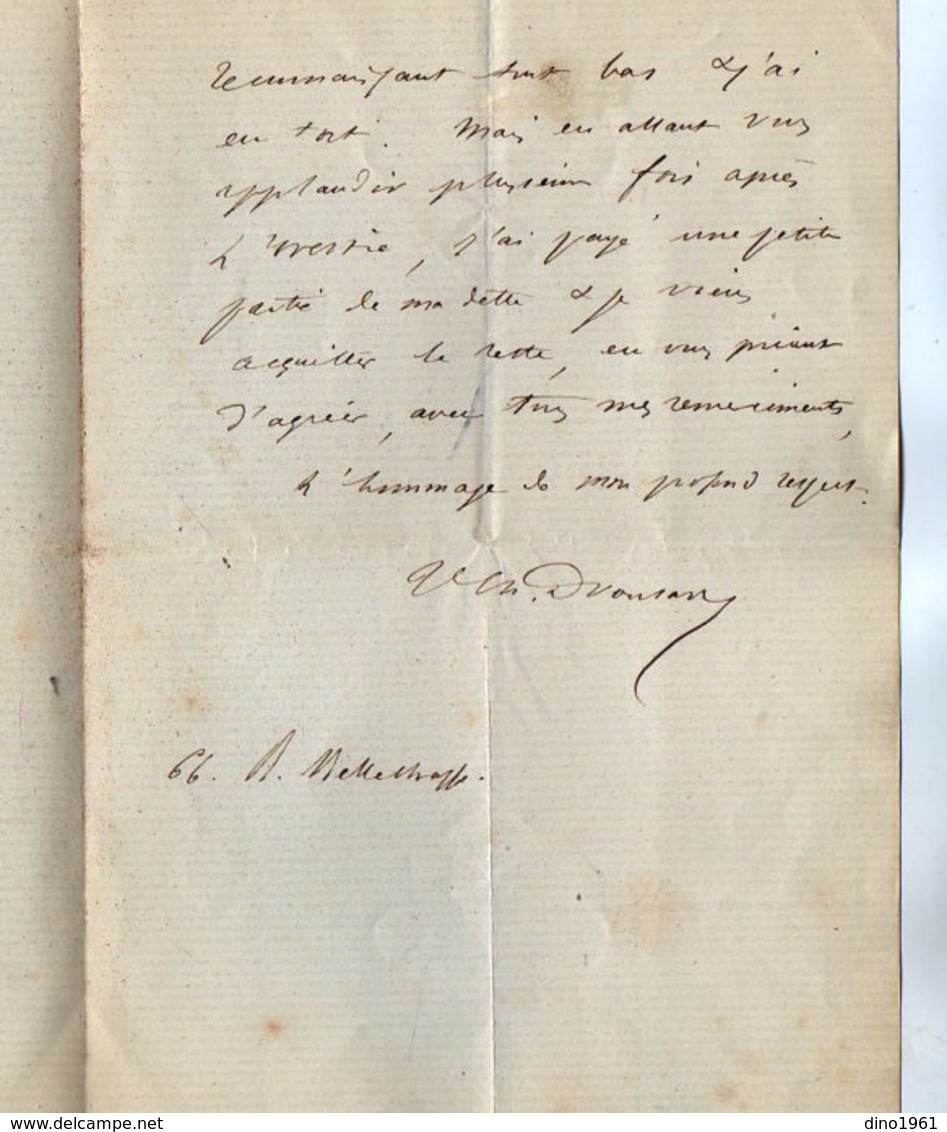 reconnaissant tout bas & j'ai
eu tort. Mais en allant vous
applaudir plusieurs fois après
L'Orestie, j'ai payé une petite
partie de ma dette & je viens
acquitter le reste, en vous priant
d'agréer, avec tous mes remerciments,
l'hommage de mon profond respect.
66. R.
delcampe.net
dino1961